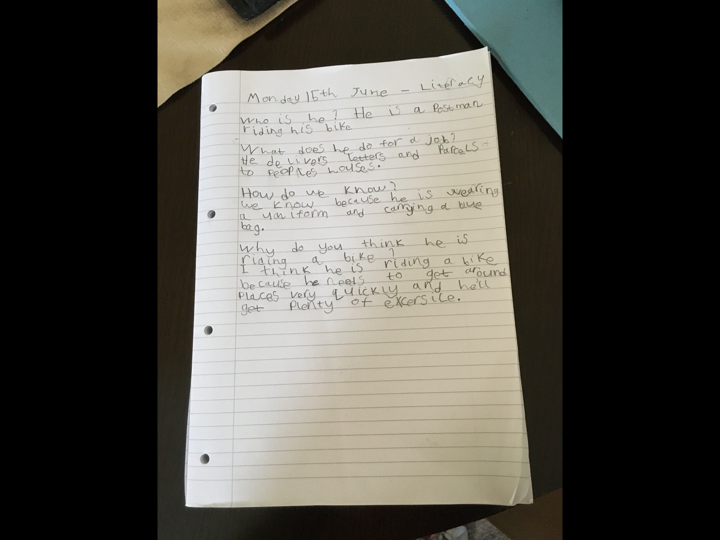 Monday 15th June - Literacy
Who is he? He is a Postman
riding his bike
What does he do for a Job?
He delivers letters and Parcels
to PeoPles houses.
How do we know?
we know because he is wearing
a uniform and carrying a blue
bag.
Why do you think he is
riding a bike?
I think he is riding a bike
because he needs to get around
Places very quickly and he'll
get Plenty of excersice.